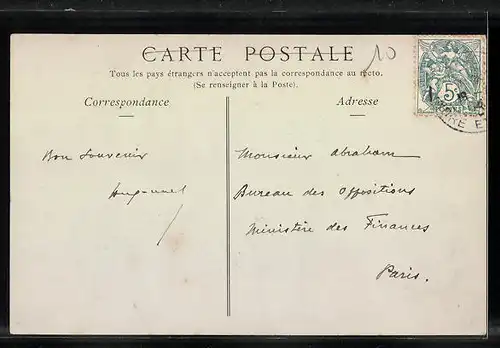 CARTE POSTALE
10
Tous les pays étrangers n'acceptent pas la correspondance au recto.
(Se renseigner à la Poste).
Correspondance
Adresse
5
Bon Souvenir
Monsieur Abraham
Bureau des Oppositions
Ministère des Finances
Paris.